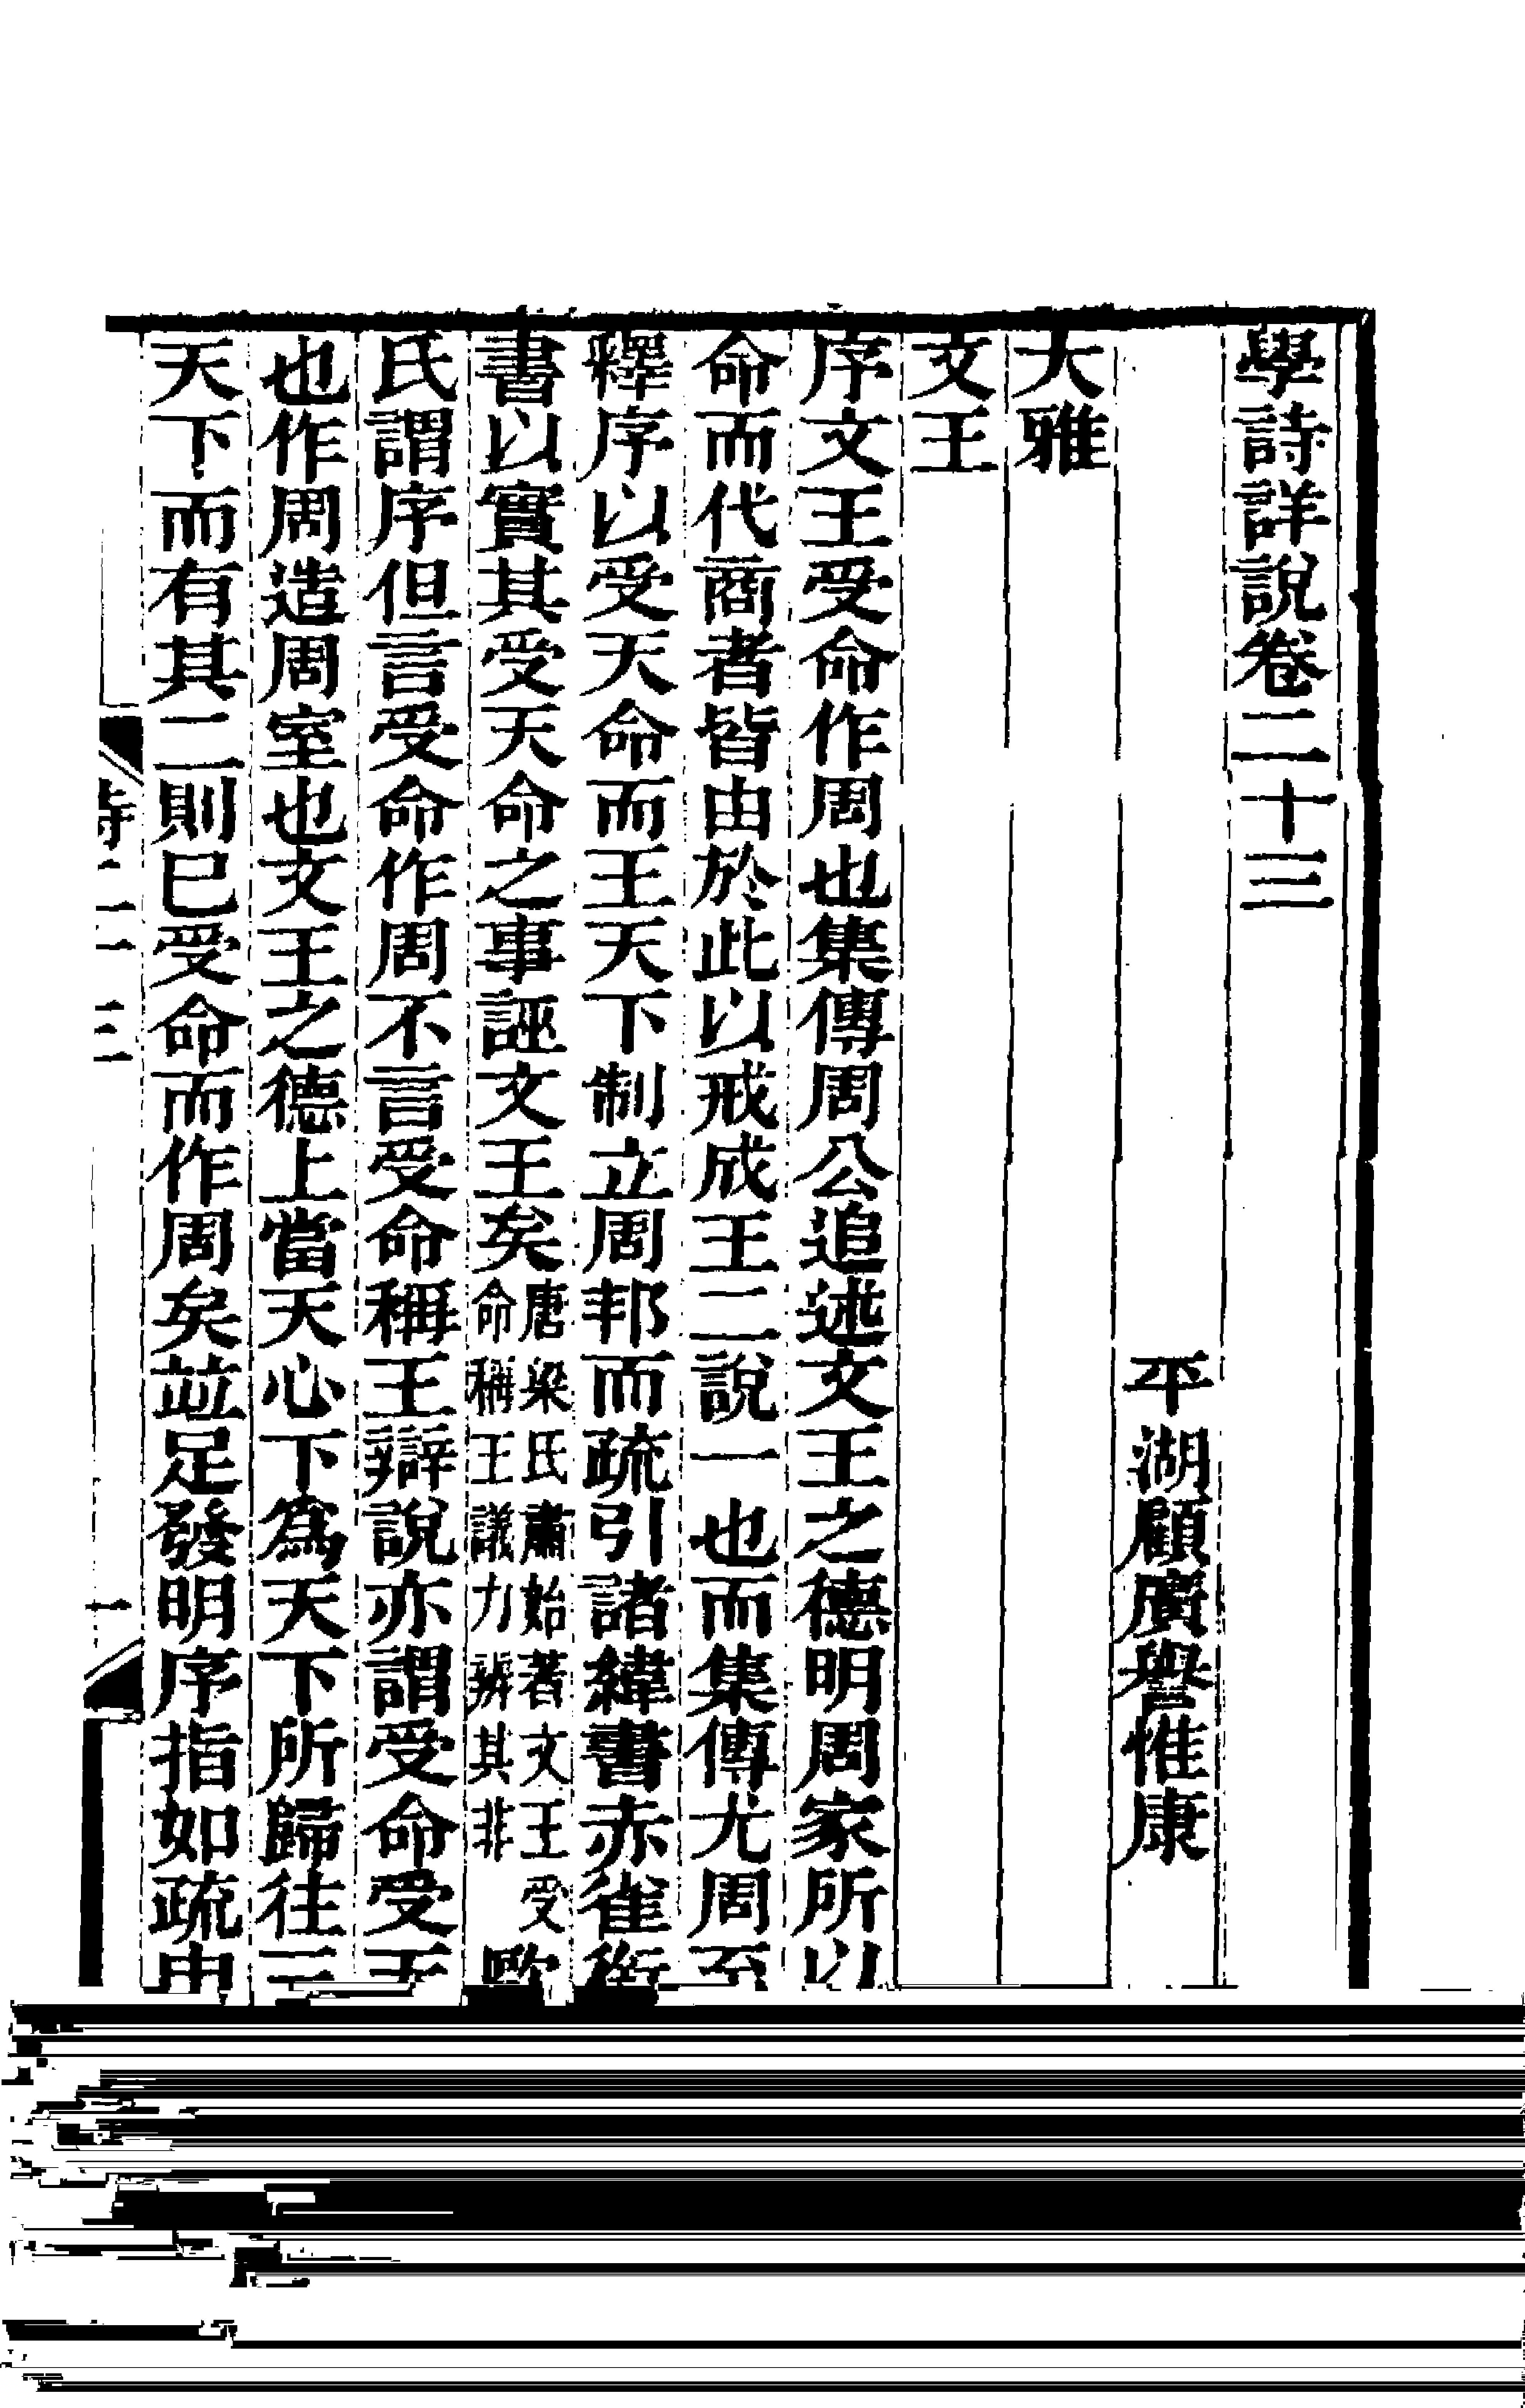 學詩詳說卷二十三
平湖顧廣譽惟康
大雅
文王
序文王受命作周也集傳周公追述文王之德明周家所以
命而代商者皆由於此以戒成王二說一也而集傳尤周至
釋序以受天命而王天下制立周邦而疏引諸緯書赤雀銜
書以實其受天命之事誣文王矣唐梁氏肅始著文王受命稱王議力辨其非歐
氏謂序但言受命作周不言受命稱王辯說亦謂受命受
也作周造周室也文王之德上當天心下爲天下所歸往三
天下而有其二則已受命而作周矣並足發明序指如疏申